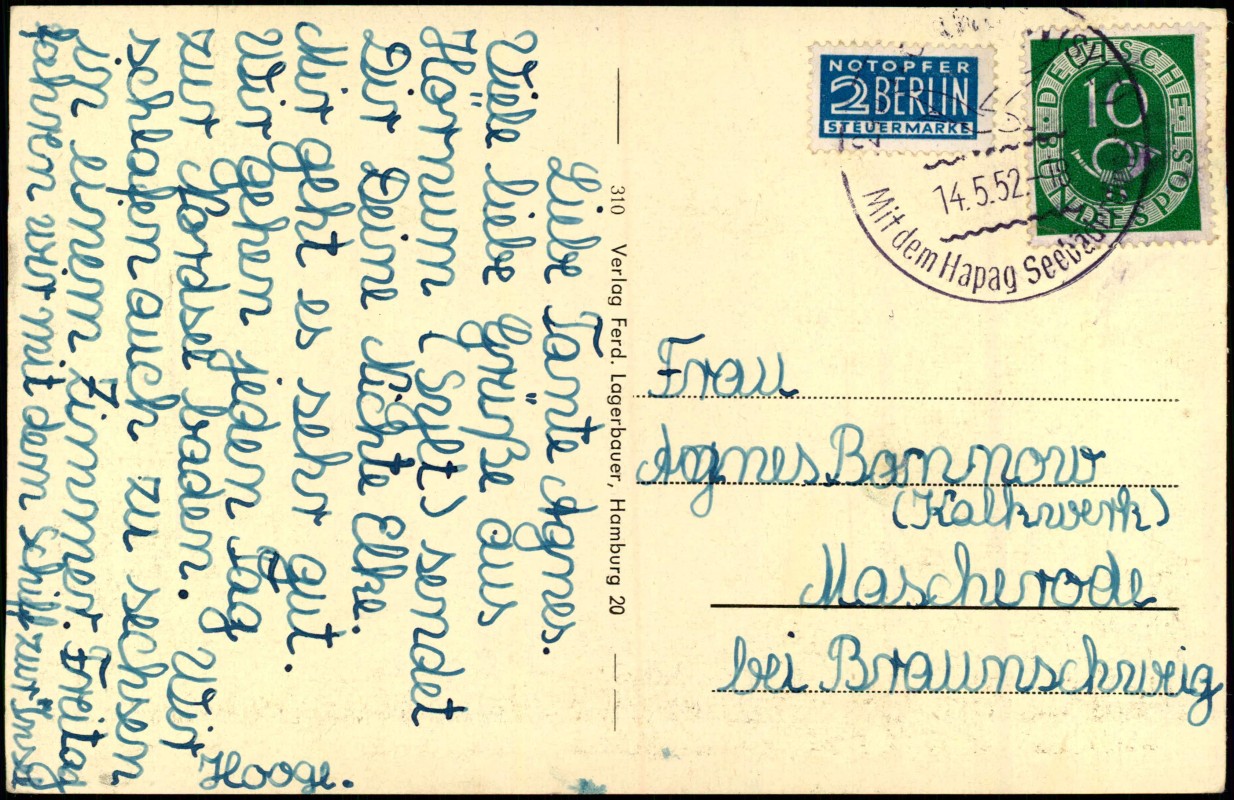 Liebe Tante Agnes.
Viele liebe Grüße aus
Hörnum (Sylt) sendet
Dir Deine Nichte Elke.
Mir geht es sehr gut.
Wir gehen jeden Tag
zur Nordsee baden. Wir
schlafen auch zu sechsen
in einem Zimmer. Freitag
fahren wir mit dem Schiff zur Insel
Hooge.
310 Verlag Ferd. Lagerbauer, Hamburg 20
NOTOPFER
2 BERLIN
STEUERMARKE
DEUTSCHE
10
BUNDESPOST
14.5.52.
Mit dem Hapag Seebäder
Frau
Agnes Bonnow
(Kalkwerk)
Mascherode
bei Braunschweig